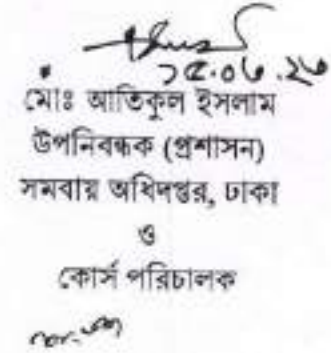 ১৫.০৬.২৩
মোঃ আতিকুল ইসলাম
উপনিবন্ধক (প্রশাসন)
সমবায় অধিদপ্তর, ঢাকা
ও
কোর্স পরিচালক